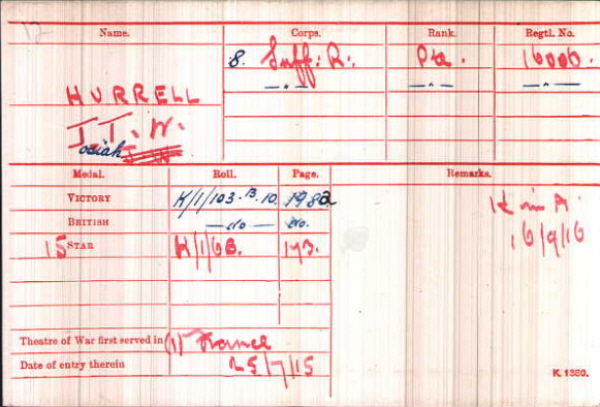 Name. Corps. Rank. Regtl. No.
8. Suff. R. Pte. 16006.
HURRELL — " — — " — — " —
J. T. W.
osiah
Medal. Roll. Page. Remarks.
VICTORY K/1/103.B.10. 1982 K in A.
BRITISH — do — do. 16/9/16
15 STAR K/1/6B. 173.
Theatre of War first served in (1) France
Date of entry therein 25/7/15
K. 1380.